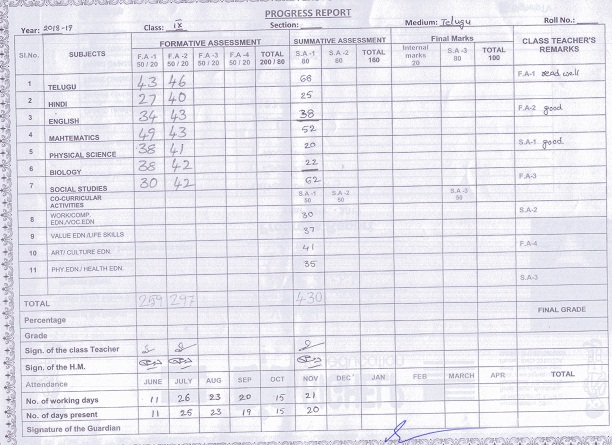 PROGRESS REPORT
Year: 2018-19 Class: IX Section: Medium: Telugu Roll No.:
Sl.No. SUBJECTS FORMATIVE ASSESSMENT SUMMATIVE ASSESSMENT Final Marks CLASS TEACHER'S REMARKS
F.A -1 50 / 20 F.A -2 50 / 20 F.A -3 50 / 20 F.A -4 50 / 20 TOTAL 200 / 80 S.A -1 80 S.A -2 80 TOTAL 160 Internal marks 20 S.A -3 80 TOTAL 100
1 TELUGU 43 46 68 F.A-1 Read well
2 HINDI 27 40 25
3 ENGLISH 34 43 38 F.A-2 good
4 MAHTEMATICS 49 43 52
5 PHYSICAL SCIENCE 38 41 20 S.A-1 good
6 BIOLOGY 38 42 22
7 SOCIAL STUDIES 30 42 62 F.A-3
CO-CURRICULAR ACTIVITIES S.A -1 50 S.A -2 50 S.A -3 50
8 WORK/COMP. EDN./VOC.EDN 30 S.A-2
9 VALUE EDN./LIFE SKILLS 37
10 ART/ CULTURE EDN. 41 F.A-4
11 PHY.EDN / HEALTH EDN. 35
S.A-3
TOTAL 259 297 430
Percentage FINAL GRADE
Grade
Sign. of the class Teacher
Sign. of the H.M.
Attendance JUNE JULY AUG SEP OCT NOV DEC JAN FEB MARCH APR TOTAL
No. of working days 11 26 23 20 15 21
No. of days present 11 25 23 19 15 20
Signature of the Guardian